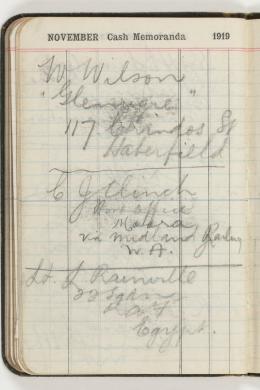 NOVEMBER Cash Memoranda 1919
W. Wilson
117 Chandos St
Haberfield
C J Clinch
Post Office
Moora
via Midland Railway
W.A.
Lt. J Rainville
Egypt.